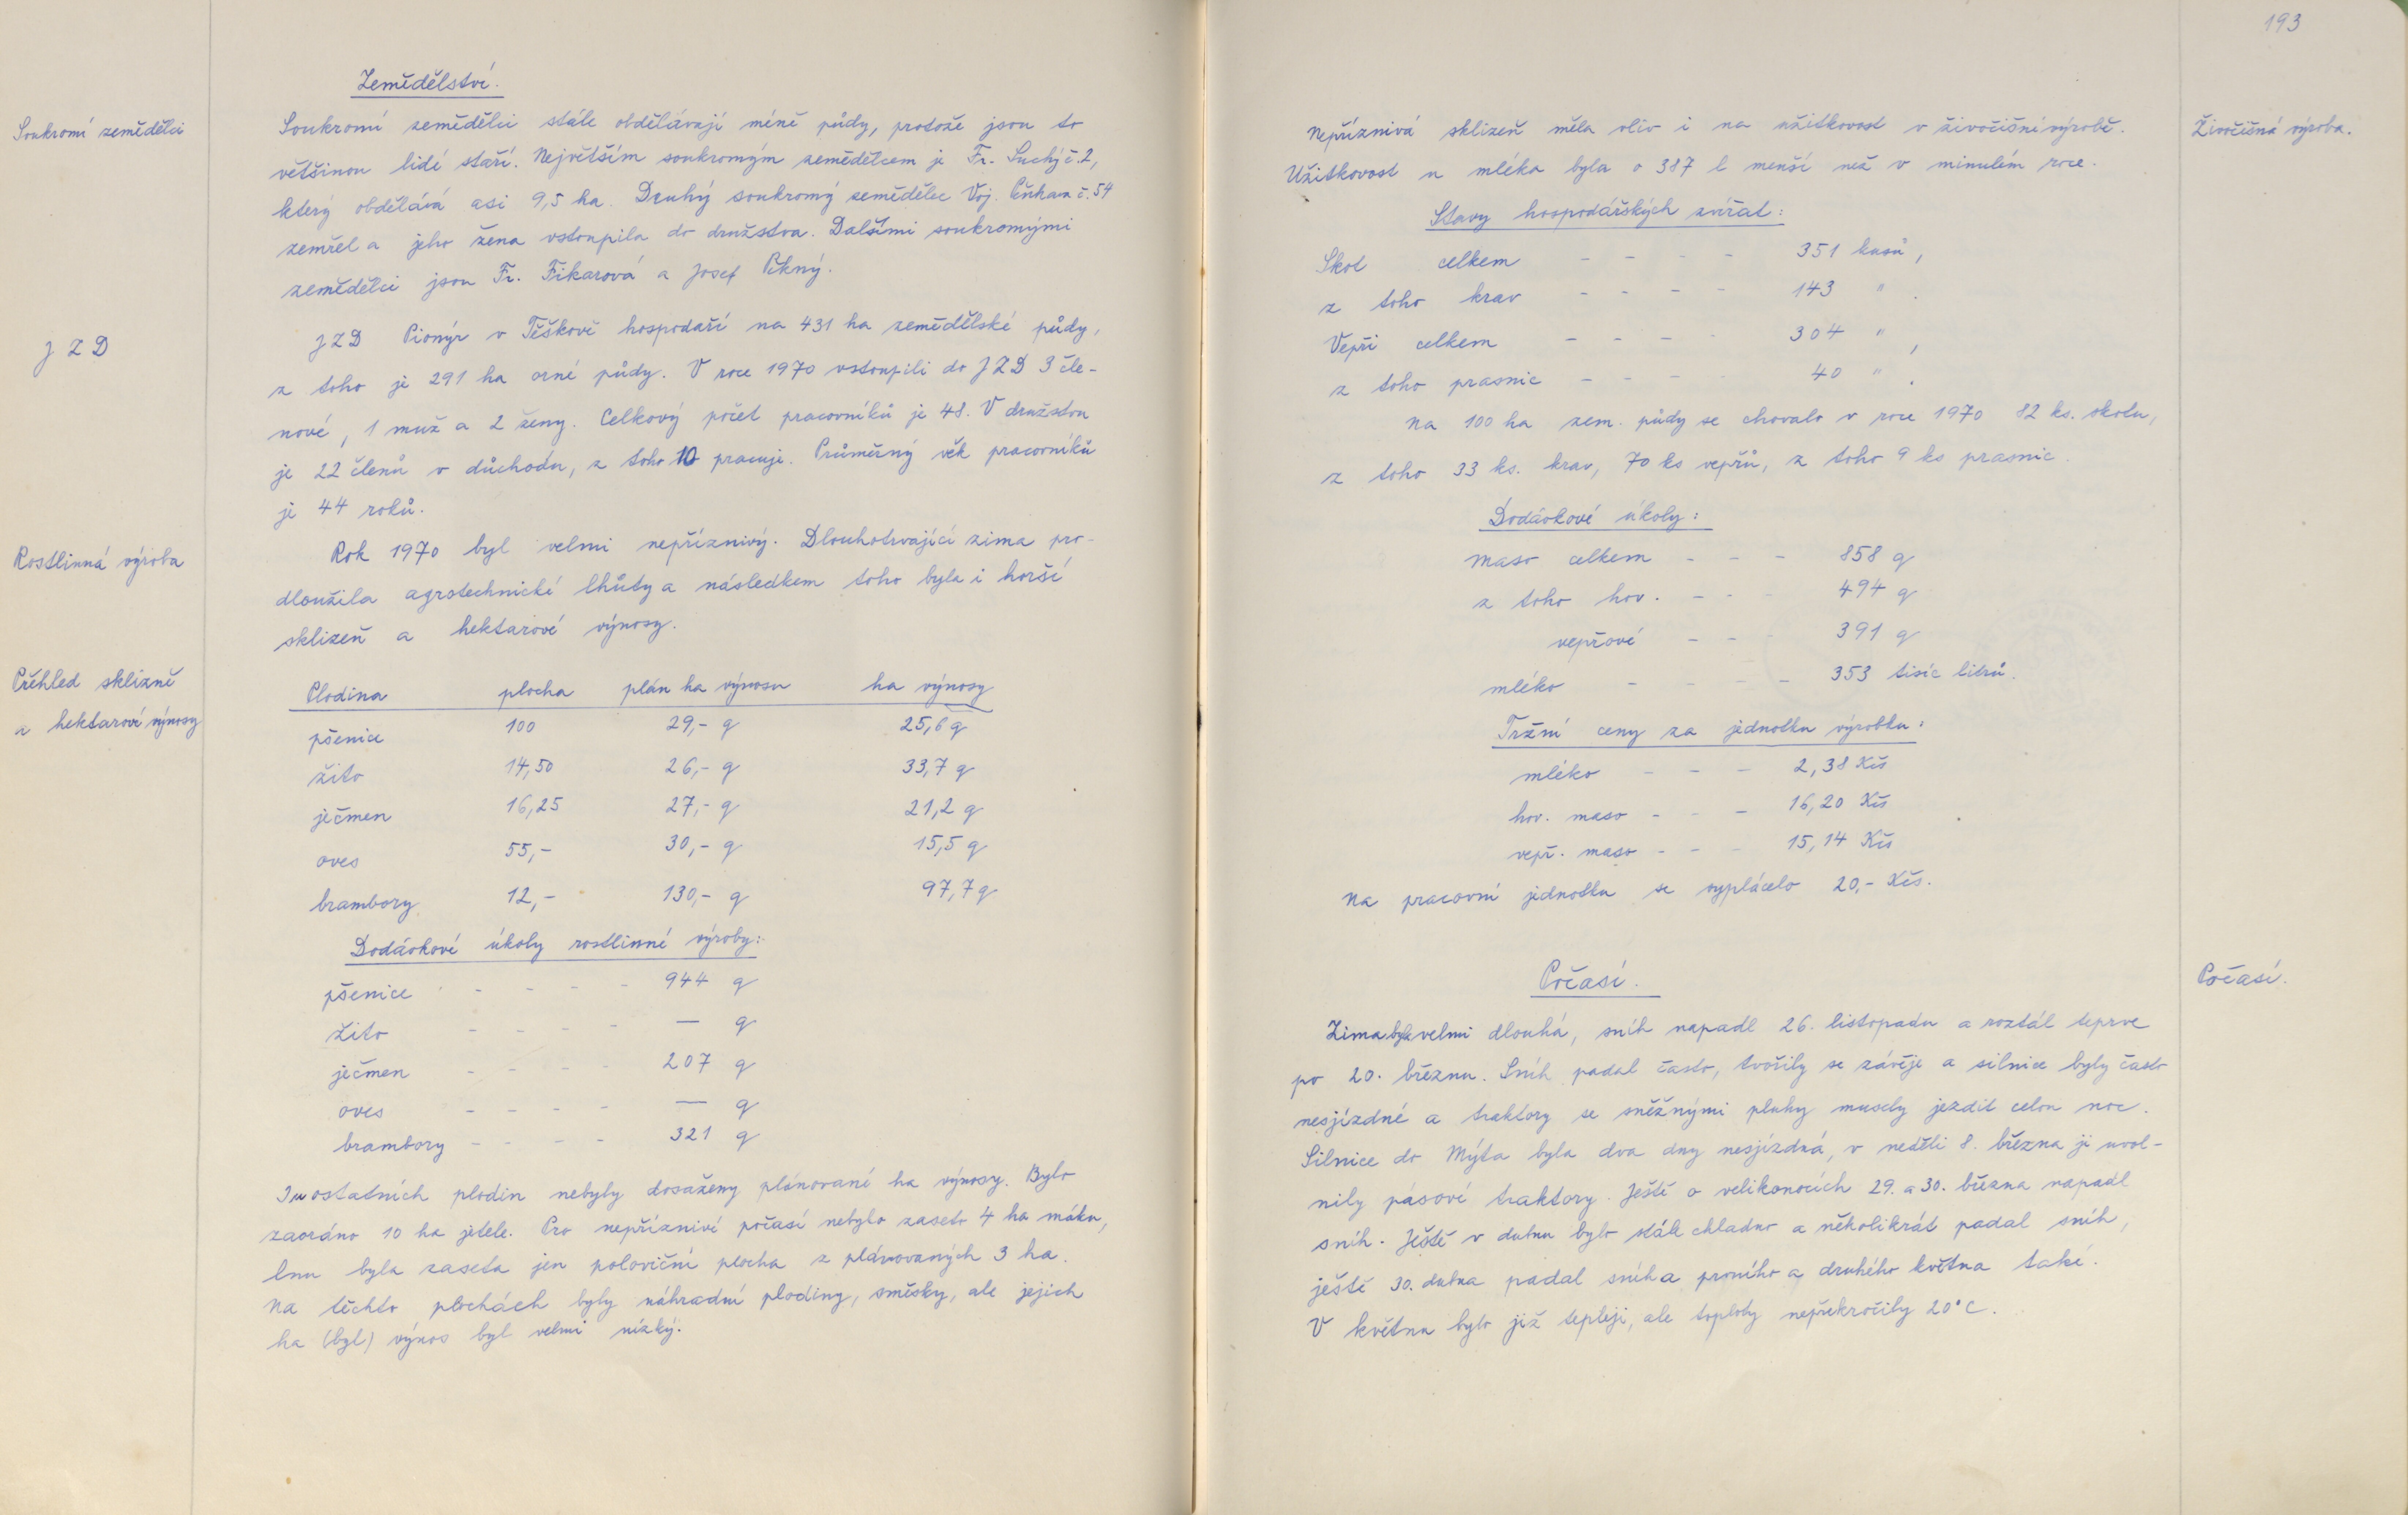 Zemědělství.
Soukromí zemědělci
Soukromí zemědělci stále obdělávají méně půdy, protože jsou to
většinou lidé staří. Největším soukromým zemědělcem je Fr. Suchý č. 2,
který obdělává asi 9,5 ha. Druhý soukromý zemědělec Voj. č. 54
zemřel a jeho žena vstoupila do družstva. Dalšími soukromými
zemědělci jsou Fr. Fikarová a Josef Pěkný.
JZD
JZD Pionýr v Těškově hospodaří na 431 ha zemědělské půdy,
z toho je 291 ha orné půdy. V roce 1970 vstoupili do JZD 3 čle-
nové, 1 muž a 2 ženy. Celkový počet pracovníků je 48. V družstvu
je 22 členů v důchodu, z toho 10 pracuje. Průměrný věk pracovníků
je 44 roků.
Rostlinná výroba
Rok 1970 byl velmi nepříznivý. Dlouhotrvající zima pro-
dloužila agrotechnické lhůty a následkem toho byla i horší
sklizeň a hektarové výnosy.
Přehled sklizně
a hektarové výnosy
Plodina plocha plán ha výnosu ha výnosy
pšenice 100 29,- q 25,6 q
žito 14,50 26,- q 33,7 q
ječmen 16,25 27,- q 21,2 q
oves 55,- 30,- q 15,5 q
brambory 12,- 130,- q 97,7 q
Dodávkové úkoly rostlinné výroby:
pšenice - - - - - 944 q
žito - - - - — q
ječmen - - - - 207 q
oves - - - - — q
brambory - - - - 321 q
I u ostatních plodin nebyly dosaženy plánované ha výnosy. Bylo
zaoráno 10 ha jetele. Pro nepříznivé počasí nebylo zaseto 4 ha máku,
lnu byla zaseta jen poloviční plocha z plánovaných 3 ha.
Na těchto plochách byly náhradní plodiny, směsky, ale jejich
ha (byl) výnos byl velmi nízký.
193
Živočišná výroba.
Nepříznivá sklizeň měla vliv i na užitkovost v živočišné výrobě.
Užitkovost u mléka byla o 387 l menší než v minulém roce.
Stavy hospodářských zvířat:
Skot celkem - - - - 351 kusů,
z toho krav - - - - 143 " .
Vepři celkem - - - - 304 " ,
z toho prasnic - - - - 40 " .
Na 100 ha zem. půdy se chovalo v roce 1970 82 ks. skotu,
z toho 33 ks. krav, 70 ks vepřů, z toho 9 ks prasnic.
Dodávkové úkoly:
maso celkem - - - 858 q
z toho hov. - - - 494 q
vepřové - - - 391 q
mléko - - - - - 353 tisíc litrů.
Tržní ceny za jednotku výrobku:
mléko - - - 2,38 Kčs
hov. maso - - - 16,20 Kčs
vepř. maso - - - 15,14 Kčs
Na pracovní jednotku se vyplácelo 20,- Kčs.
Počasí.
Počasí.
Zima byla velmi dlouhá, sníh napadl 26. listopadu a roztál teprve
po 20. březnu. Sníh padal často, tvořily se závěje a silnice byly často
nesjízdné a traktory se sněžnými pluhy musely jezdit celou noc.
Silnice do Mýta byla dva dny nesjízdná, v neděli 8. března ji uvol-
nily pásové traktory. Ještě o velikonocích 29. a 30. března napadl
sníh. Ještě v dubnu bylo stále chladno a několikrát padal sníh,
ještě 30. dubna padal sníh a prvního a druhého května také.
V květnu bylo již tepleji, ale teploty nepřekročily 20°C.